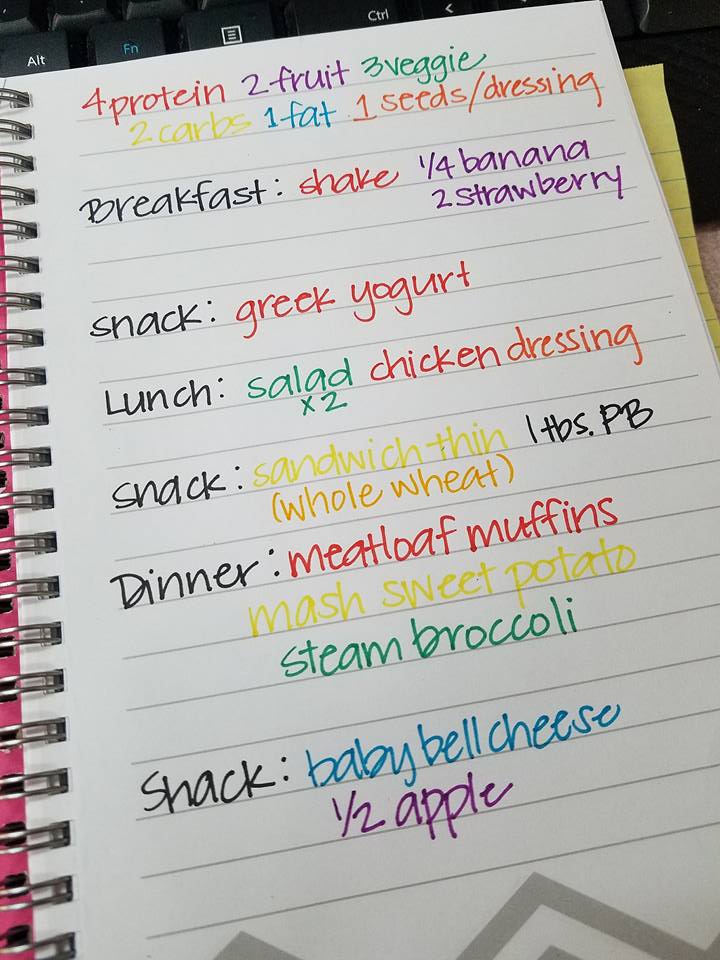 Alt Fn Ctrl <
4 protein 2 fruit 3 veggie
2 carbs 1 fat 1 seeds/dressing
Breakfast: shake 1/4 banana
2 strawberry
snack: greek yogurt
Lunch: salad chicken dressing
x2
snack: sandwich thin 1 tbs. PB
(whole wheat)
Dinner: meatloaf muffins
mash sweet potato
steam broccoli
Snack: babybell cheese
1/2 apple